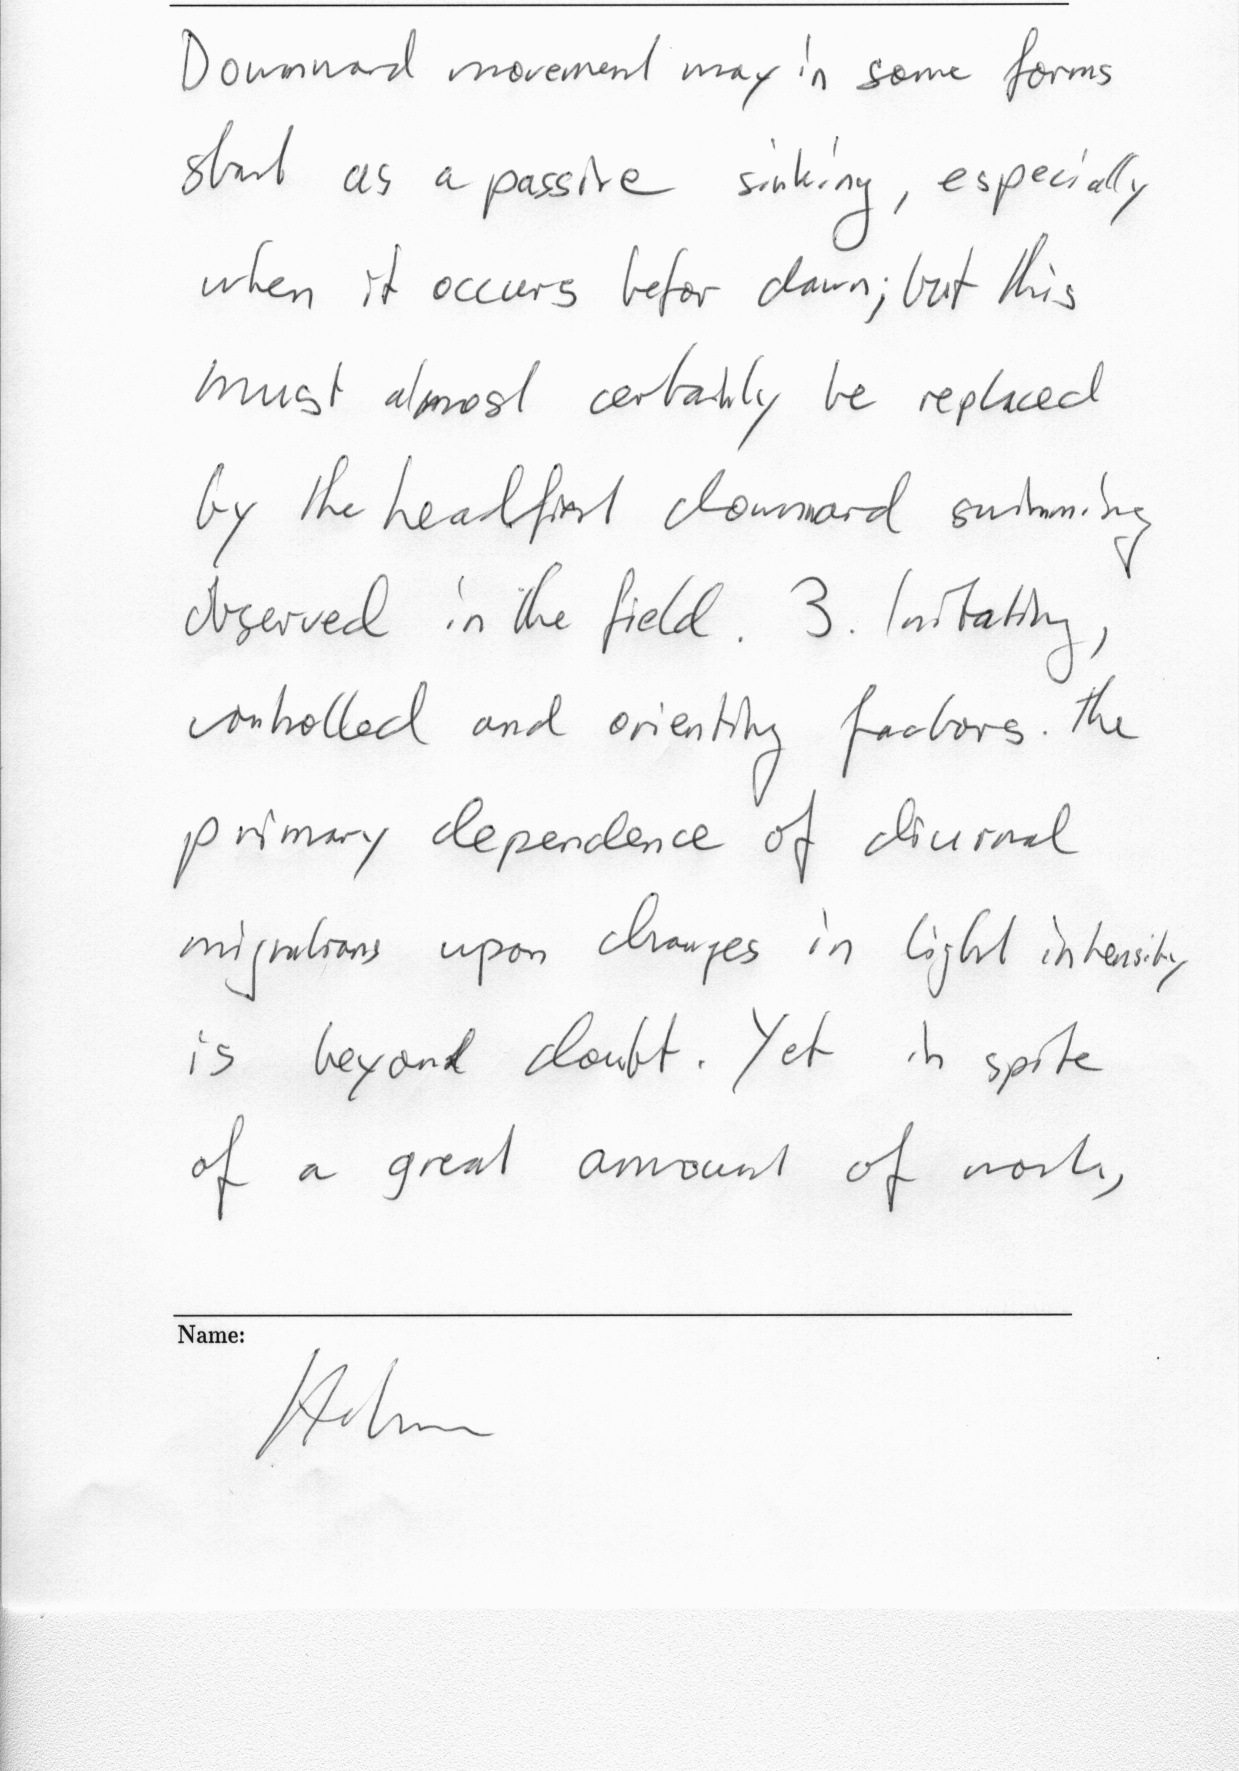 Downward movement may in some forms
start as a passive sinking, especially
when it occurs befor dawn; but this
must almost certainly be replaced
by the headfirst downward swimming
observed in the field. 3. Initating,
controlled and orienting factors. The
primary dependence of diurnal
migrations upon changes in light intensity
is beyond doubt. Yet in spite
of a great amount of work,
Name: